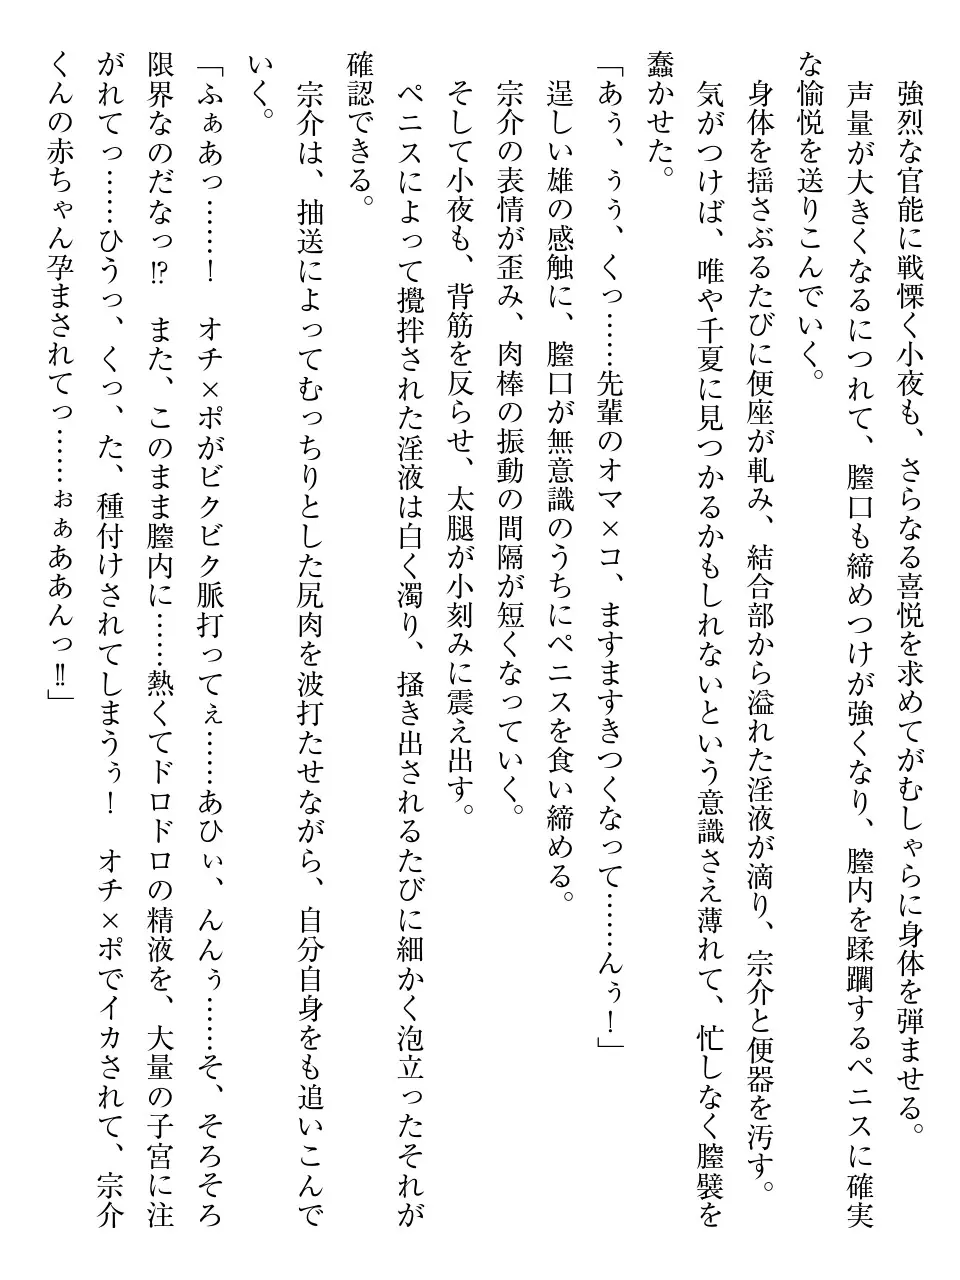 強烈な官能に戦慄く小夜も、さらなる喜悦を求めてがむしゃらに身体を弾ませる。
声量が大きくなるにつれて、膣口も締めつけが強くなり、膣内を蹂躙するペニスに確実
な愉悦を送りこんでいく。
身体を揺さぶるたびに便座が軋み、結合部から溢れた淫液が滴り、宗介と便器を汚す。
気がつけば、唯や千夏に見つかるかもしれないという意識さえ薄れて、忙しなく膣襞を
蠢かせた。
「あぅ、ぅぅ、くっ……先輩のオマ×コ、ますますきつくなって……んぅ！」
逞しい雄の感触に、膣口が無意識のうちにペニスを食い締める。
宗介の表情が歪み、肉棒の振動の間隔が短くなっていく。
そして小夜も、背筋を反らせ、太腿が小刻みに震え出す。
ペニスによって攪拌された淫液は白く濁り、掻き出されるたびに細かく泡立ったそれが
確認できる。
宗介は、抽送によってむっちりとした尻肉を波打たせながら、自分自身をも追いこんで
いく。
「ふぁあっ……！　オチ×ポがビクビク脈打ってぇ……あひぃ、んんぅ……そ、そろそろ
限界なのだなっ⁉　また、このまま膣内に……熱くてドロドロの精液を、大量の子宮に注
がれてっ……ひうっ、くっ、た、種付けされてしまうぅ！　オチ×ポでイカされて、宗介
くんの赤ちゃん孕まされてっ……ぉぁああんっ‼」